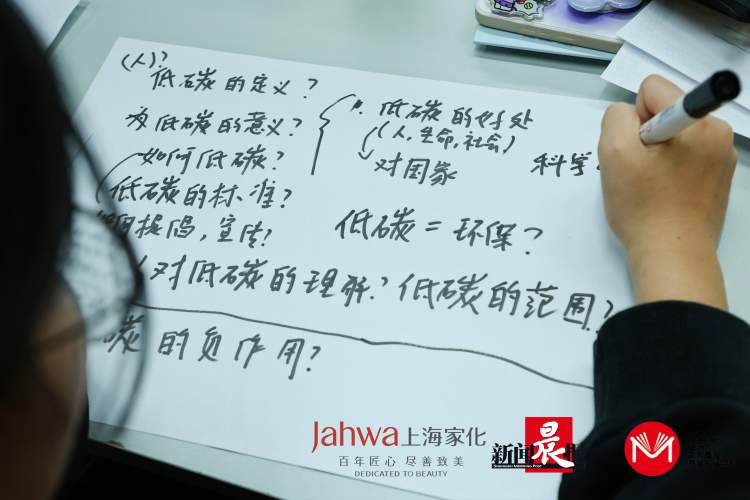 (人)?
低碳的定义?
低碳的意义?
如何低碳?
低碳的标准?
提倡,宣传?
低碳的好处
(人,生命,社会)
对国家
科学
低碳=环保?
对低碳的理解?低碳的范围?
碳的负作用?
Jahwa上海家化
百年匠心 尽善致美
DEDICATED TO BEAUTY
新闻晨报
SHANGHAI MORNING POST